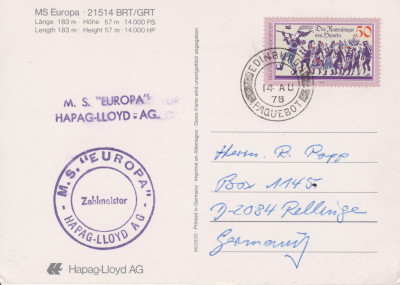 MS Europa · 21514 BRT/GRT
Länge 183 m · Höhe 57 m · 14.000 PS
Length 183 m · Height 57 m · 14.000 HP
M. S. "EUROPA"
HAPAG-LLOYD - AG.
M. S. "EUROPA"
Zahlmeister
HAPAG-LLOYD AG
Hapag-Lloyd AG
Diese Karte wird unentgeltlich abgegeben
Printed in Germany · Imprimé en Allemagne
Der Rattenfänger
von Hameln
50
EDINBURGH
14 AU
78
PAQUEBOT
Herrn R. Popp
Box 1145
D-2084 Rellinge
Germany